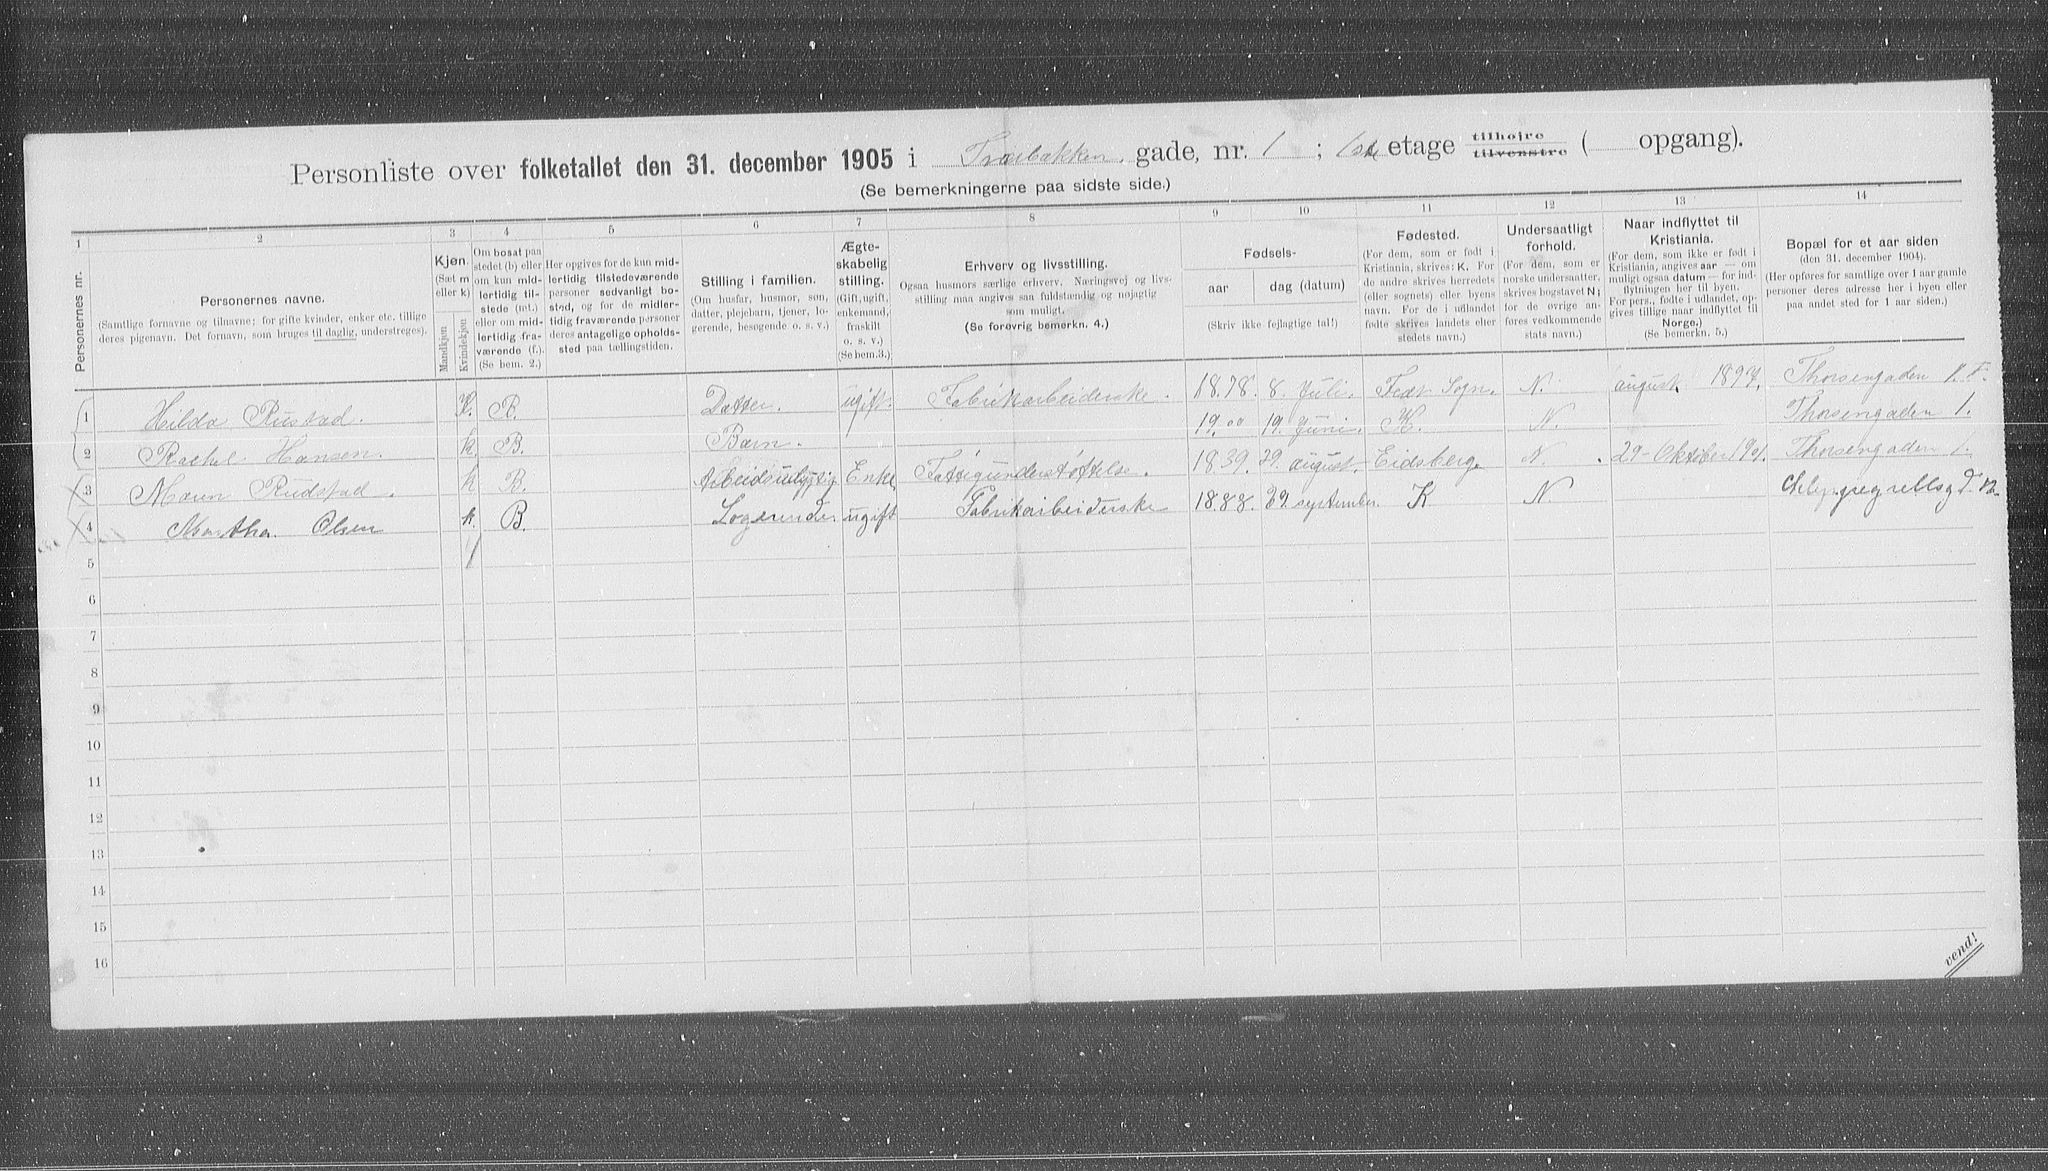 Personliste over folketallet den 31. december 1905 i Træbakken gade, nr. 1 ; 1ste etage tilhøire tilvenstre ( opgang).
(Se bemerkningerne paa sidste side.)
1 2 3 4 5 6 7 8 9 10 11 12 13 14
Personernes nr.
Personernes navne.
(Samtlige fornavne og tilnavne; for gifte kvinder, enker etc. tillige
deres pigenavn. Det fornavn, som bruges til daglig, understreges).
Kjøn.
(Sæt m
eller k)
Mandkjøn
Kvindekjøn
Om bosat paa
stedet (b) eller
om kun mid-
lertidig til-
stede (mt.)
eller om mid-
lertidig fra-
værende (f.).
(Se bem. 2.)
Her opgives for de kun mid-
lertidig tilstedeværende
personer sedvanligt bo-
sted, og for de midler-
tidig fraværende personer
deres antagelige opholds-
sted paa tællingstiden.
Stilling i familien.
(Om husfar, husmor, søn,
datter, plejebarn, tjener, lo-
gerende, besøgende o. s. v.)
Ægte-
skabelig
stilling.
(Gift, ugift,
enkemand,
fraskilt
o. s. v.)
(Se bem.3.)
Erhverv og livsstilling.
Ogsaa husmors særlige erhverv. Næringsvej og livs-
stilling maa angives saa fuldstændig og nøjagtig
som muligt.
(Se forøvrig bemerkn. 4.)
Fødsels-
aar dag (datum)
(Skriv ikke fejlagtige tal!)
Fødested.
(For dem, som er født i
Kristiania, skrives: K. For
de andre skrives herredets
(eller sognets) eller byens
navn. For de i udlandet
fødte skrives landets eller
stedets navn.)
Undersaatligt
forhold.
(For dem, som er
norske undersaatter,
skrives bogstavet N;
for de øvrige an-
føres vedkommende
stats navn.)
Naar indflyttet til
Kristiania.
(For dem, som ikke er født i
Kristiania, angives aar — om
muligt ogsaa datum — for ind-
flytningen her til byen.
For pers., fødte i udlandet, op-
gives tillige naar indflyttet til
Norge.)
(Se bemerkn. 5.)
Bopæl for et aar siden
(den 31. december 1904).
(Her opføres for samtlige over 1 aar gamle
personer deres adresse her i byen eller
paa andet sted for 1 aar siden.)
1 Hilda Rustad. K. B. Datter. ugift. Fabrikarbeiderske. 1878. 8. Juli. N. august 1897. Thorsengaden 1.
2 Rachel Hansen. k. B. Barn. 19.00 19. Juni. K. N. Thorsengaden 1.
3 Maren Rudstad. k B. Enke Fattigunderstøttelse. 1839. 29. august. Eidsberg. N. Thorsengaden 1.
4 Martha Olsen k. B. Logerende ugift Fabrikarbeiderske 1888. 29. september. K N
5
6
7
8
9
10
11
12
13
14
15
16
vend!